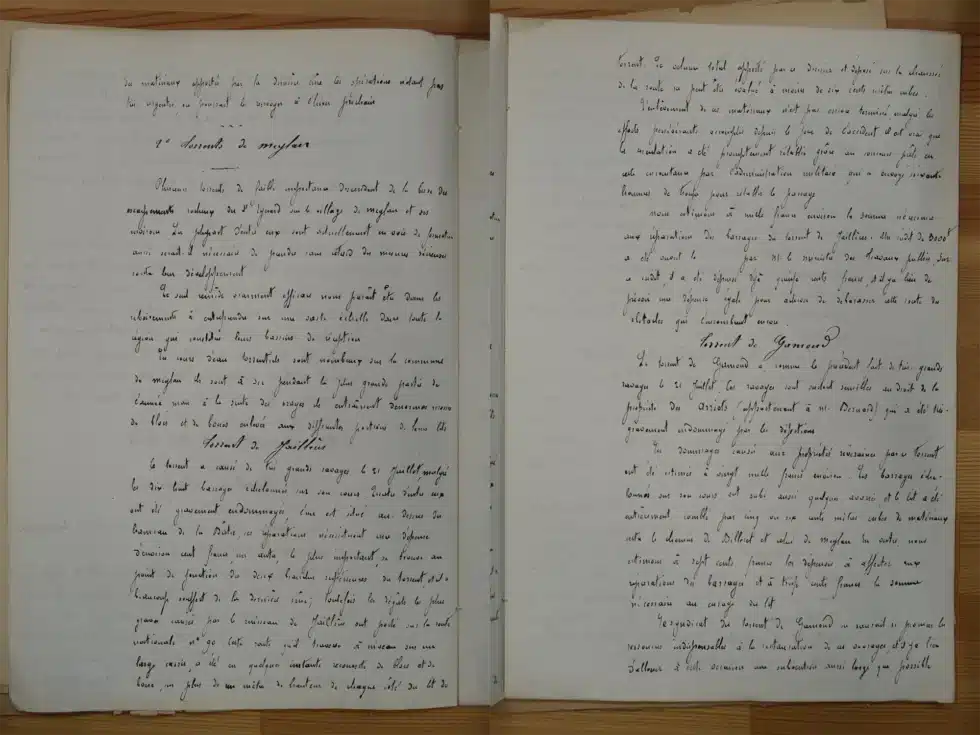 des matériaux apportés par la dernière crue les opérations n'étant pas
très urgentes, on pourrait les ramener à l'hiver prochain
2° Torrents de Meylan
Plusieurs torrents de faible importance descendent de la base des
escarpements rocheux du St Eynard sur le village de Meylan et ses
environs La plupart d'entre eux sont actuellement en voie de formation
aussi serait-il nécessaire de prendre sans retard des mesures sérieuses
contre leur développement
Le seul remède vraiment efficace nous paraît être dans les
reboisements à entreprendre sur une vaste échelle dans toute la
région qui constitue leurs bassins de réception
Les cours d'eau torrentiels sont nombreux sur la commune
de Meylan ils sont à sec pendant la plus grande partie de
l'année mais à la suite des orages ils entraînent d'énormes masses
de blocs et de boues enlevés aux différentes portions de leurs lits
Torrent de Jaillières
Ce torrent a causé de très grands ravages le 21 Juillet malgré
les dix huit barrages échelonnés sur son cours Quatre d'entre eux
ont été gravement endommagés l'un est situé au dessus du
hameau de la Bâtie, ses réparations nécessitent une dépense
d'environ cent francs, un autre, le plus important, se trouve au
point de jonction des deux bassins supérieurs du torrent, et a
beaucoup souffert de la dernière crue; toutefois les dégâts les plus
graves causés par le ruisseau de Jaillières ont porté sur la route
nationale n° 90 Cette route qui traverse à niveau sur un
large cassis, a été en quelques instants recouverte de blocs et de
boue, sur plus de un mètre de hauteur de chaque côté du lit du
torrent. Le volume total apporté par ce dernier et déposé sur la chaussée
de la route ne peut être évalué à moins de six cents mètres cubes.
L'enlèvement de ces matériaux n'est pas encore terminé malgré les
efforts persévérants accomplis depuis le jour de l'accident il est vrai que
la circulation a été promptement rétablie grâce au concours prêté en
cette circonstance par l'administration militaire qui a envoyé
hommes de troupe pour rétablir le passage
Nous estimons à mille francs environ la somme nécessaire
aux réparations des barrages du torrent de Jaillières. Un crédit de 3000f
a été ouvert le par M. le ministre des travaux publics, sur
ce crédit, il a été dépensé déjà quinze cents francs et il y a lieu de
prévoir une dépense égale pour achever de débarrasser cette route des
obstacles qui l'encombrent encore.
Torrent de Gamond
Le torrent de Gamond a comme le précédent fait de très grands
ravages le 21 Juillet Ces ravages sont surtout sensibles au droit de la
propriété des (appartenant à M. Bernard) qui a été très
gravement endommagée par les déjections
Les dommages causés aux propriétés riveraines par ce torrent
ont été estimés à vingt mille francs environ. Les barrages éche-
lonnés sur son cours ont subi aussi quelques avaries, et le lit a été
entièrement comblé par cinq ou six cents mètres cubes de matériaux
entre le chemin de et celui de Meylan En outre, nous
estimons à sept cents francs les dépenses à affecter aux
réparations des barrages et à trois cents francs la somme
nécessaire au curage du lit
Le syndicat du torrent de Gamond ne saurait se procurer les
ressources indispensables à la restauration de ces ouvrages, et il y a lieu
d'allouer à cette occasion une subvention aussi large que possible